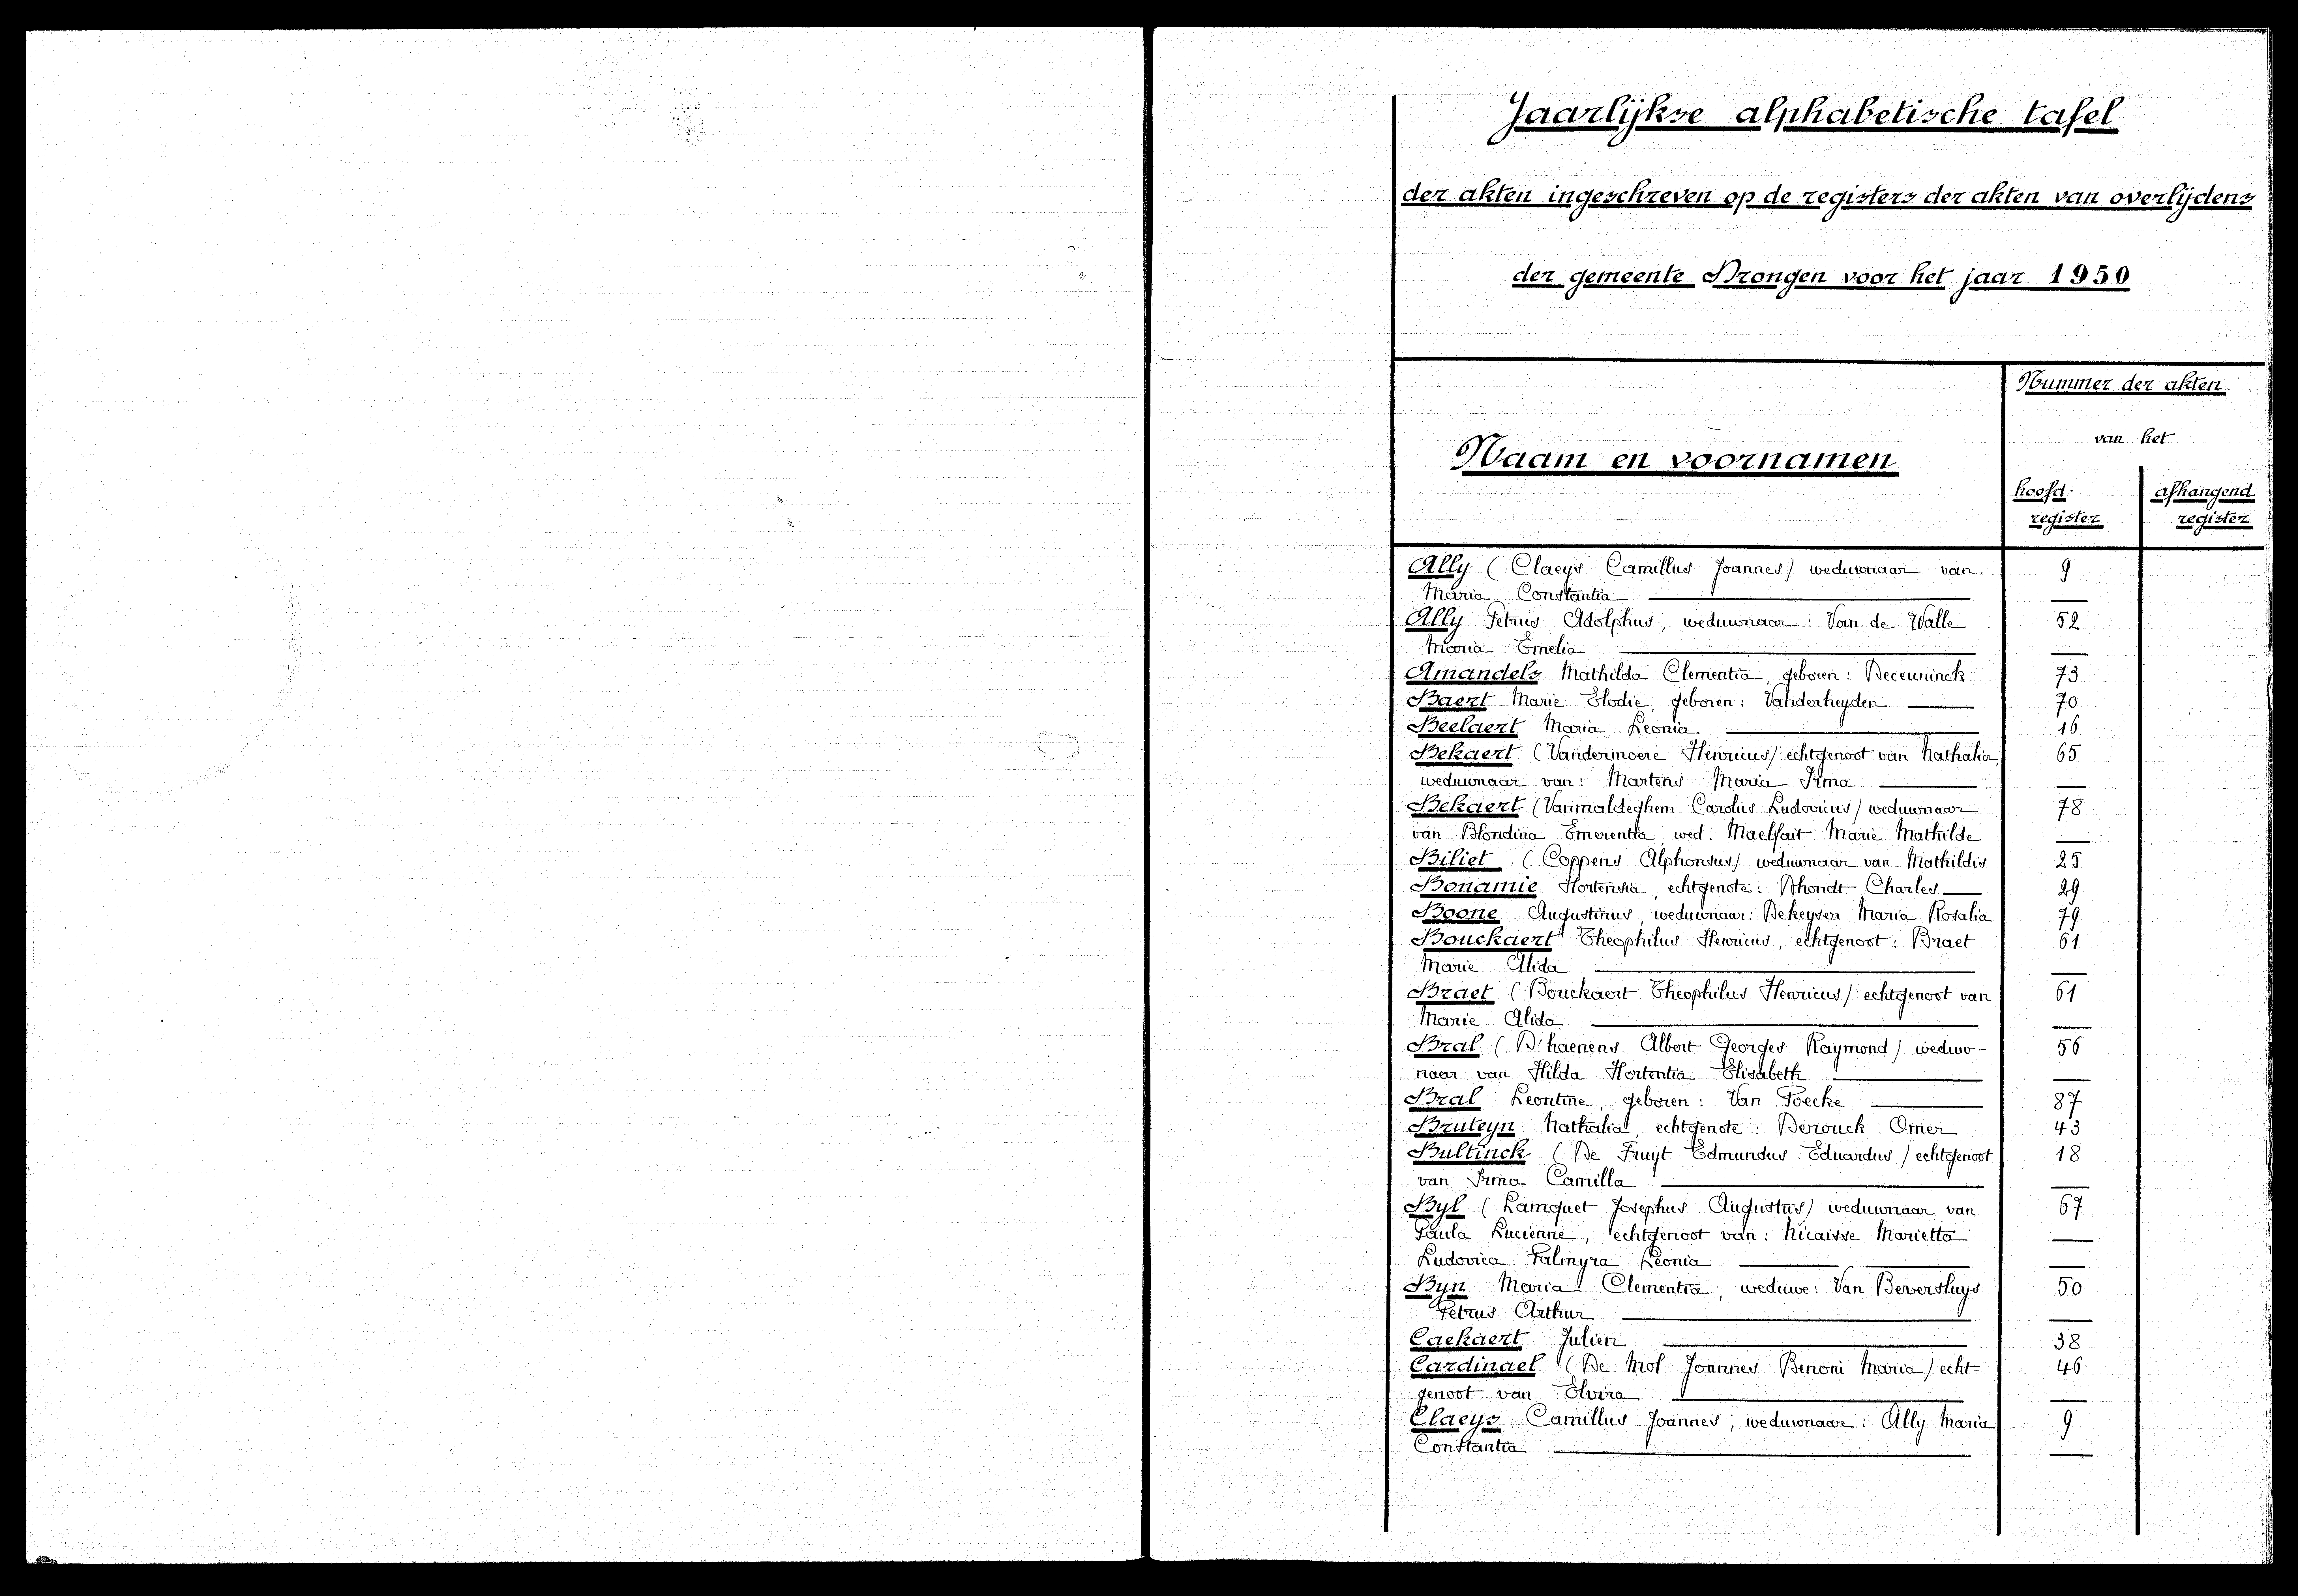 Jaarlijkse alphabetische tafel
der akten ingeschreven op de registers der akten van overlijdens
der gemeente Drongen voor het jaar 1950
Nummer der akten
van het
Naam en voornamen
hoofd- afhangend
register register
Ally (Claeys Camillus Joannes) weduwnaar van 9
Maria Constantia
Ally Petrus Adolphus, weduwnaar: Van de Walle 52
Maria Emelia
Amandels Mathilda Clementia, geboren: Deceuninck 73
Baert Marie Elodie, geboren: Vanderheyden 70
Beelaert Maria Leonia 16
Bekaert (Vandermoere Henricus) echtgenoot van Nathalia, 65
weduwnaar van: Martens Maria Irma
Bekaert (Vanmaldeghem Carolus Ludovicus) weduwnaar 78
van Blondina Emerentia, wed. Maelfait Marie Mathilde
Biliet (Coppens Alphonsus) weduwnaar van Mathildis 25
Bonamie Hortensia, echtgenote: Dhondt Charles 29
Boone Augustinus, weduwnaar: Dekeyser Maria Rosalia 79
Bouckaert Theophilus Henricus, echtgenoot: Braet 61
Marie Alida
Braet (Bouckaert Theophilus Henricus) echtgenoot van 61
Marie Alida
Bral (D'haenens Albert Georges Raymond) weduw- 56
naar van Hilda Hortentia Elisabeth
Bral Leontine, geboren: Van Poecke 87
Bruteyn Nathalia, echtgenote: Derouck Omer 43
Bultinck (De Fruyt Edmundus Eduardus) echtgenoot 18
van Irma Camilla
Byl (Lamquet Josephus Augustus) weduwnaar van 67
Paula Lucienne, echtgenoot van: Nicaisse Marietta
Ludovica Palmyra Leonia
Byn Maria Clementia, weduwe: Van Beversluys 50
Petrus Arthur
Caekaert Julien 38
Cardinael (De Mol Joannes Benoni Maria) echt- 46
genoot van Elvira
Claeys Camillus Joannes; weduwnaar: Ally Maria 9
Constantia